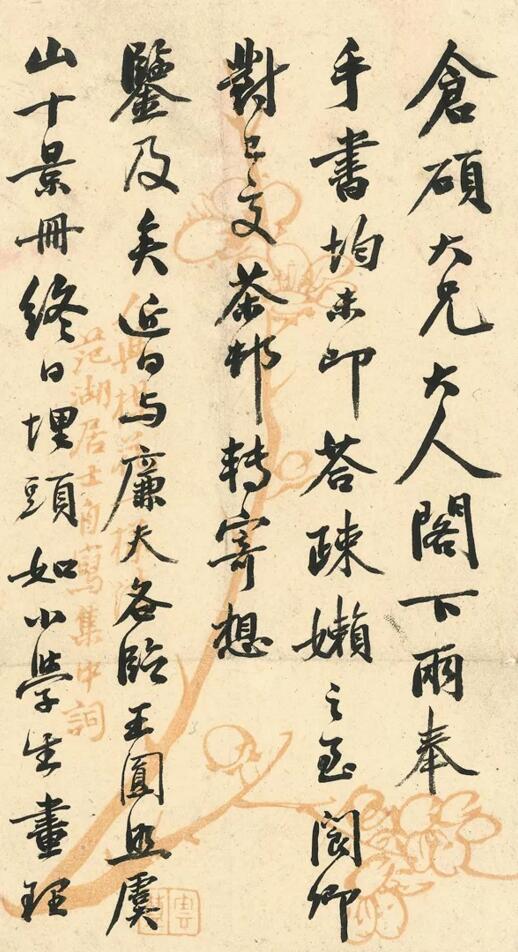 倉碩大兄大人閣下兩奉
手書均未即荅疎嬾之至閬卿
對已交茶邨轉寄想
鑒及矣近日与廉夫各臨王圓照虞
山十景冊終日埋頭如小學生畫理
范湖居士自寫集中詞